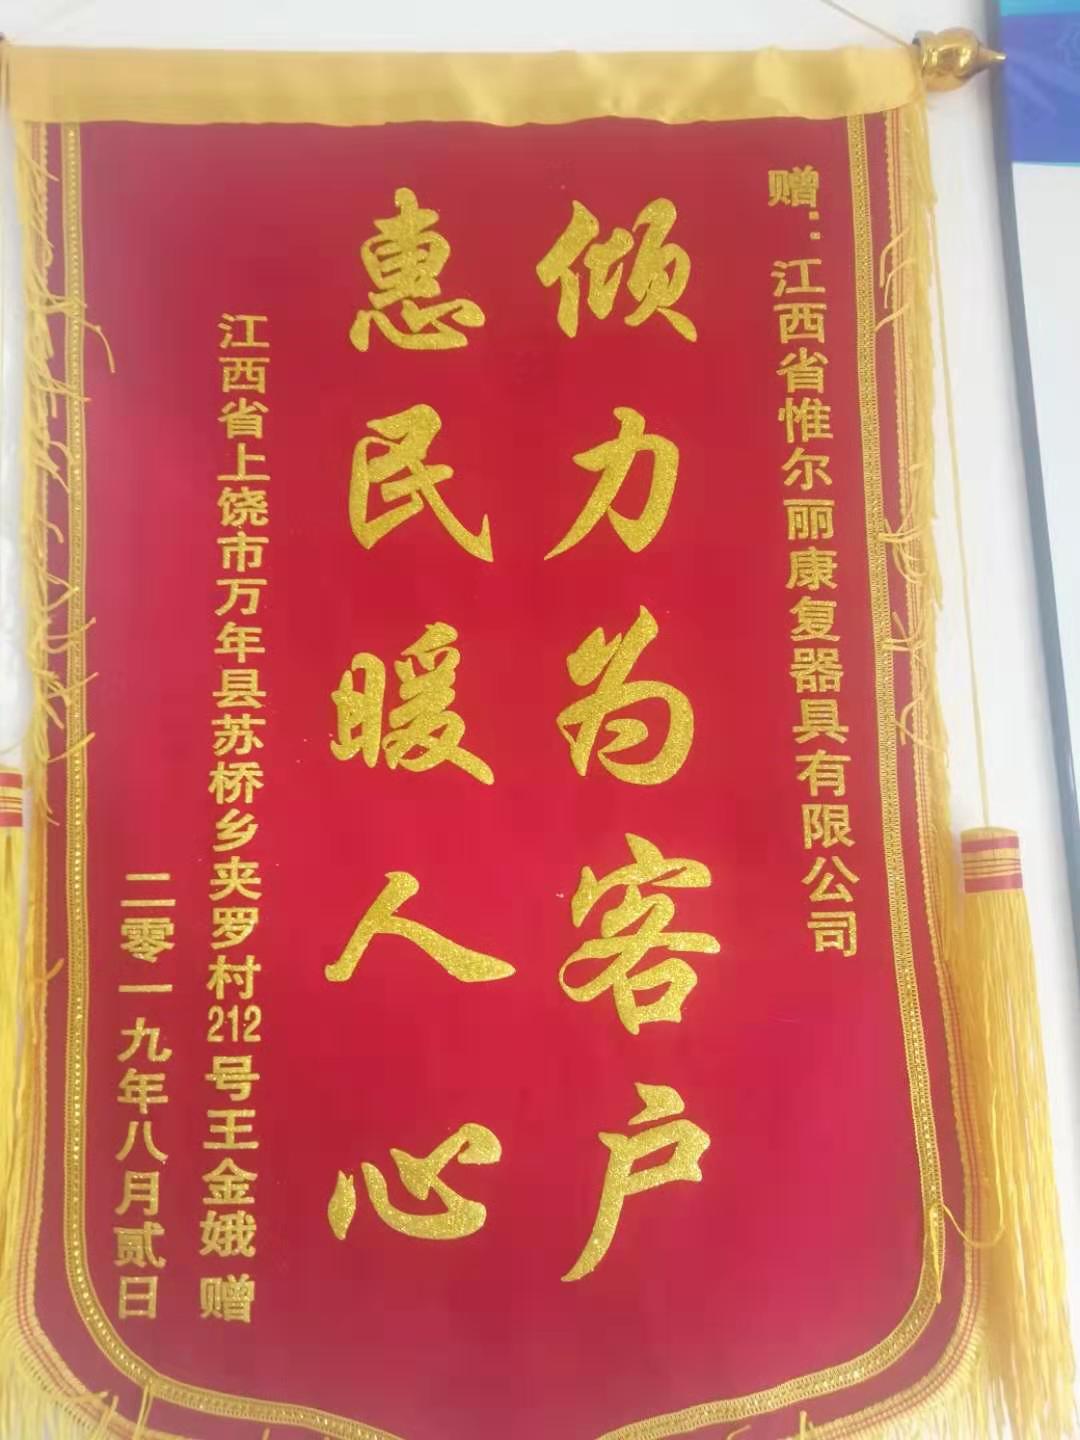 赠：江西省惟尔丽康复器具有限公司
倾力为客户
惠民暖人心
江西省上饶市万年县苏桥乡夹罗村212号王金娥 赠
二零一九年八月贰日